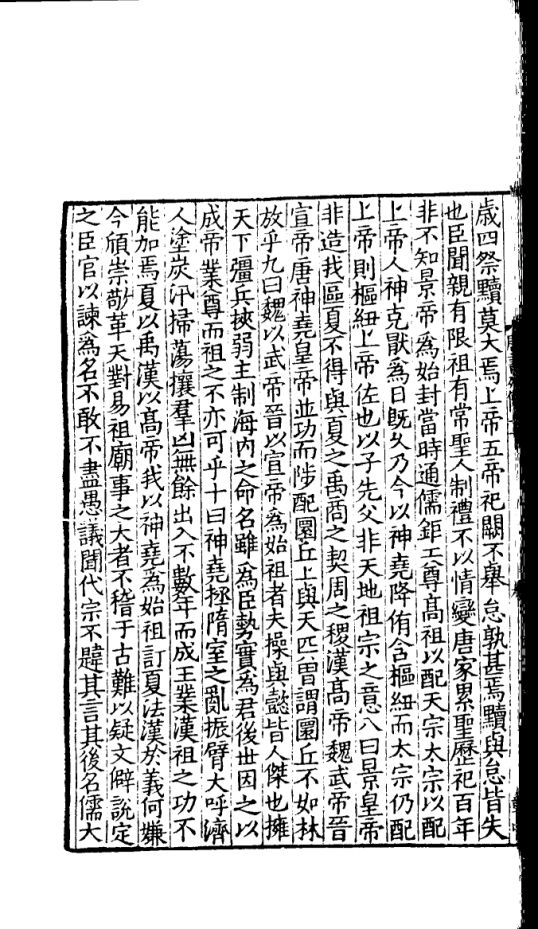 歲四祭黷莫大焉上帝五帝祀闕不舉怠孰甚焉黷與怠皆失
也臣聞親有限祖有常聖人制禮不以情變唐家累聖歷祀百年
非不知景帝爲始封當時通儒鉅工尊髙祖以配天宗太宗以配
上帝人神克厭爲日旣久乃今以神堯降侑含樞紐而太宗仍配
上帝則樞紐上帝佐也以子先父非天地祖宗之意八曰景皇帝
非造我區夏不得與夏之禹商之契周之稷漢髙帝魏武帝晉
宣帝唐神堯皇帝並功而陟配圜丘上與天匹曽謂圜丘不如林
放乎九曰魏以武帝晉以宣帝爲始祖者夫操與懿皆人傑也擁
天下彊兵挾弱主制海內之命名雖爲臣勢實爲君後丗因之以
成帝業尊而祖之不亦可乎十曰神堯拯隋室之亂振臂大呼濟
人塗炭汛掃蕩攘羣凶無餘出入不數年而成王業漢祖之功不
能加焉夏以禹漢以髙帝我以神堯爲始祖訂夏法漢於義何嫌
今頒崇敬革天對易祖廟事之大者不稽于古難以疑文僻說定
之臣官以諫爲名不敢不盡愚議聞代宗不韙其言其後名儒大